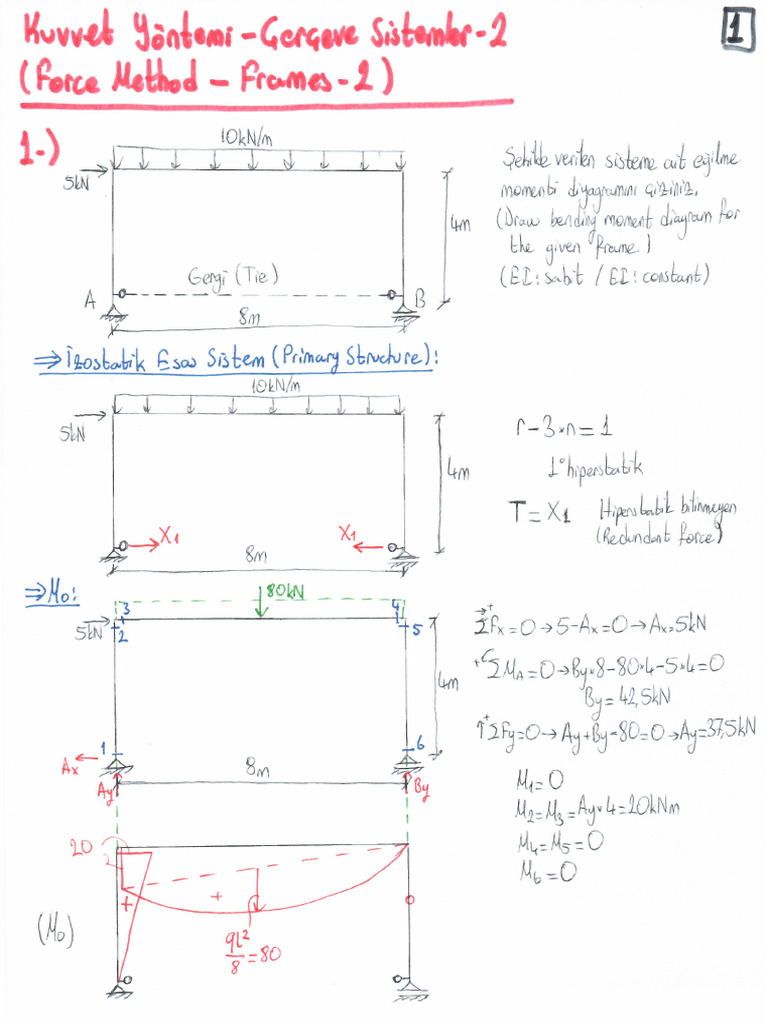 Kuvvet Yöntemi-Çerçeve Sistemler-2
1
(Force Method - Frames-2)
1-)
10kN/m
5kN
4m
Gergi (Tie)
A
B
8m
Şekilde verilen sisteme ait eğilme
momenti diyagramını çiziniz.
(Draw bending moment diagram for
the given frame)
(EI: sabit / EI: constant)
⇒ İzostatik Esas Sistem (Primary Structure):
10kN/m
5kN
4m
X1
X1
8m
r-3*n=1
1° hiperstatik
T=X1 Hiperstatik bilinmeyen
(Redundant force)
⇒ M0:
80kN
3
4
5kN
2
5
4m
1
6
Ax
8m
Ay
By
ΣFx=0→5-Ax=0→Ax=5kN
+ΣMA=0→By*8-80*4-5*4=0
By=42,5kN
↑+ΣFy=0→Ay+By-80=0→Ay=37,5kN
M1=0
M2=M3=Ay*4=20kNm
M4=M5=0
M6=0
20
+
+
qL²/8=80
(M0)